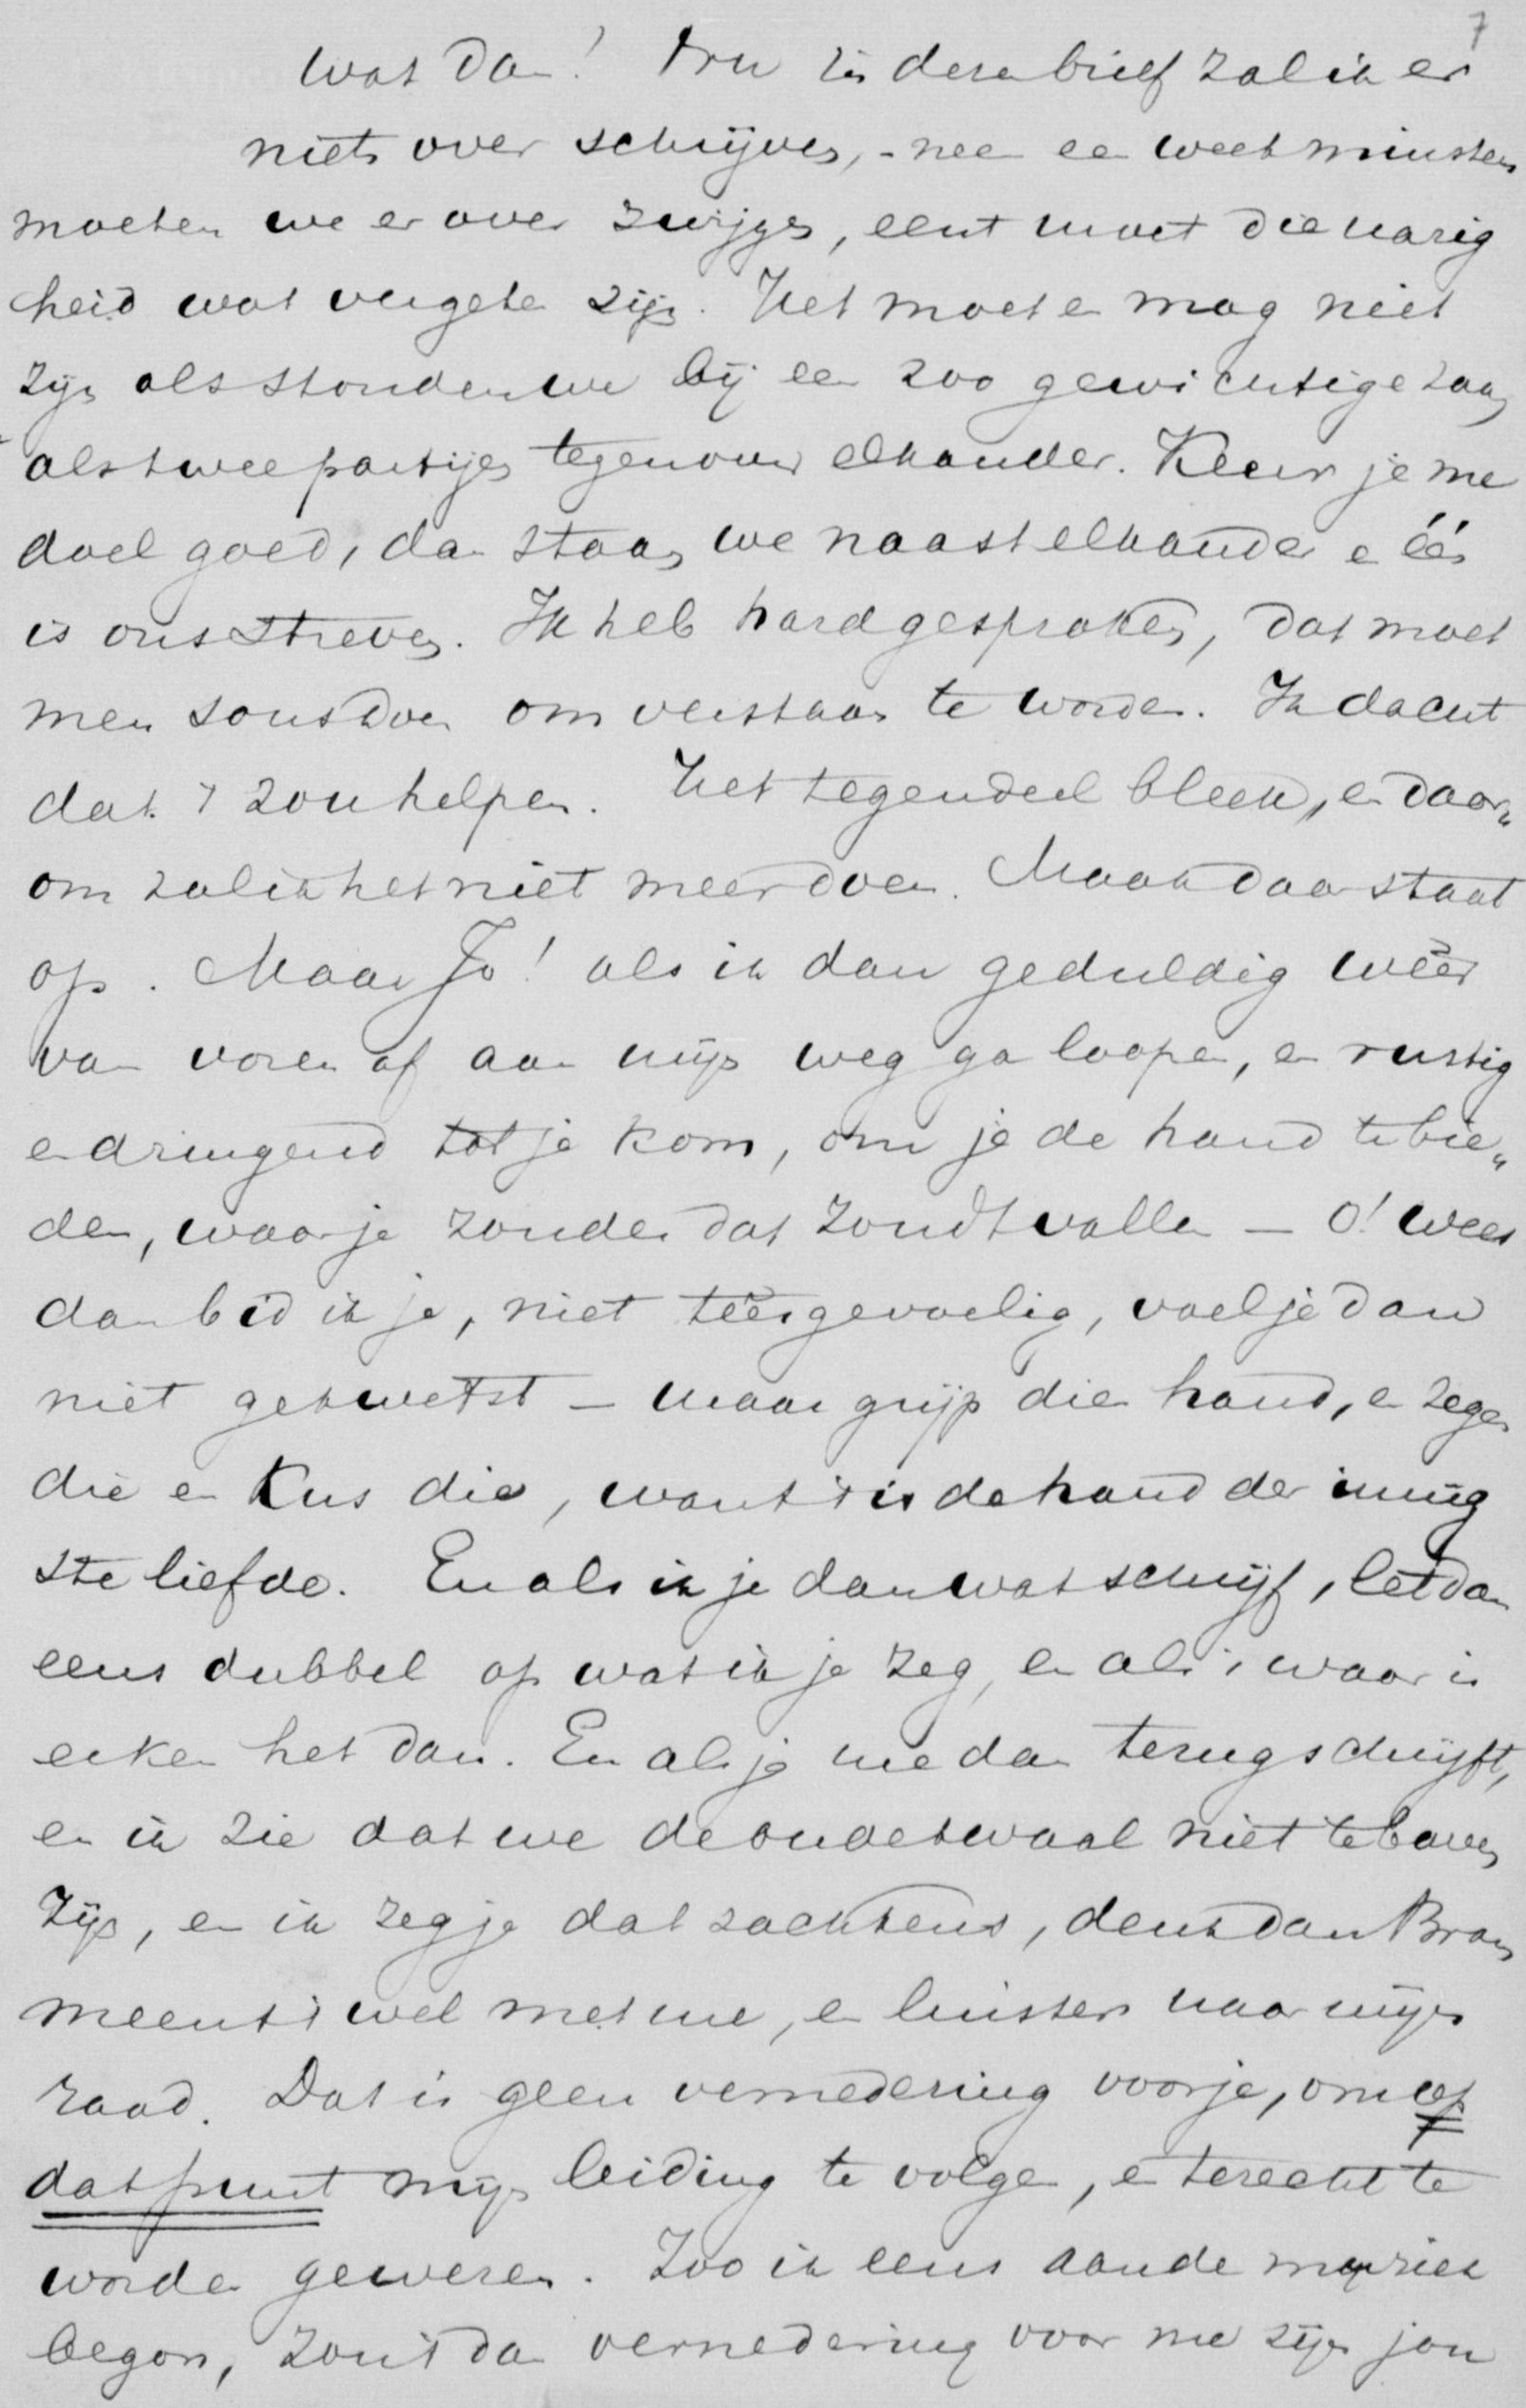 7
wat dan! Nu in deze brief zal ik er
niets over schrijven, - nee een week minstens
moeten we er over zwijgen, eerst moet die narig
heid wat vergeten zijn. Het moet en mag niet
zijn als stonden we bij een zoo gewichtige zaak
als twee partijen tegenover elkander. Keur je me
doel goed, dan staan we naast elkander en één
is ons streven. Ik heb hard gesproken, dat moet
men soms doen om verstaan te worden. Ik dacht
dat 't zou helpen. Het tegendeel bleek, en daar„
om zal ik het niet meer doen. Maak daar staat
op. Maar Jo! als ik dan geduldig weêr
van voren af aan mijn weg ga loopen, en rustig
en dringend tot je kom, om je de hand te bie„
den, waar je zonder dat zoudt vallen — o! wees
dan bid ik je, niet teêrgevoelig, voel je dan
niet gekwetst — maar grijp die hand, en zegen
die en kus die, want 't is de hand der innig
ste liefde. En als ik je dan wat schrijf, let dan
eens dubbel op wat ik je zeg, en als 't waar is
erken het dan. En als je me dan terugschrijft,
en ik zie dat we de oude kwaal niet te boven
zijn, en ik zeg je dat zachtkens, denk dan Bram
meent 't wel met me, en luister naar mijn
raad. Dat is geen vernedering voor je, om op
dat punt mijn leiding te volgen, en terecht te
worden gewezen. Zoo ik eens aan de muziek
begon, zou 't dan vernedering voor me zijn jou